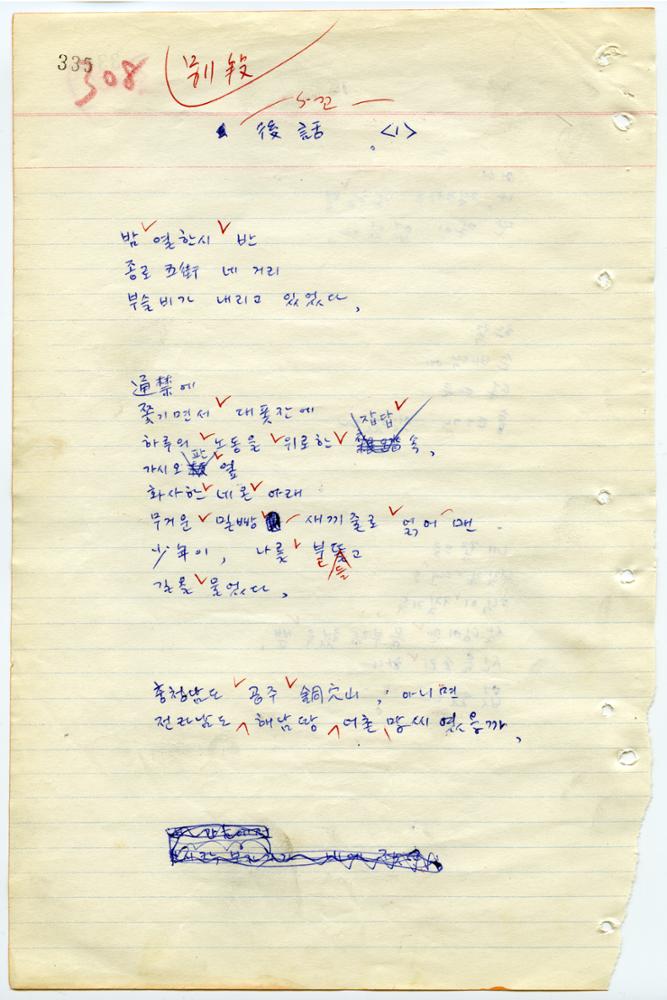 335
308 別段
5-21
後話 <1>
밤 열한시 반
종로 五街 네 거리
부슬비가 내리고 있었다,
通禁에
쫓기면서 대폿잔에
잡답
하루의 노동을 위로한 雜踏 속,
판
가시오 옆
화사한 네온 아래
무거운 밀빵 새끼줄로 얽어 맨
少年이, 나를 붙들고
길을 물었다,
충청남도 공주 銅穴山, 아니면
전라남도 해남땅 어촌 말씨였을까,